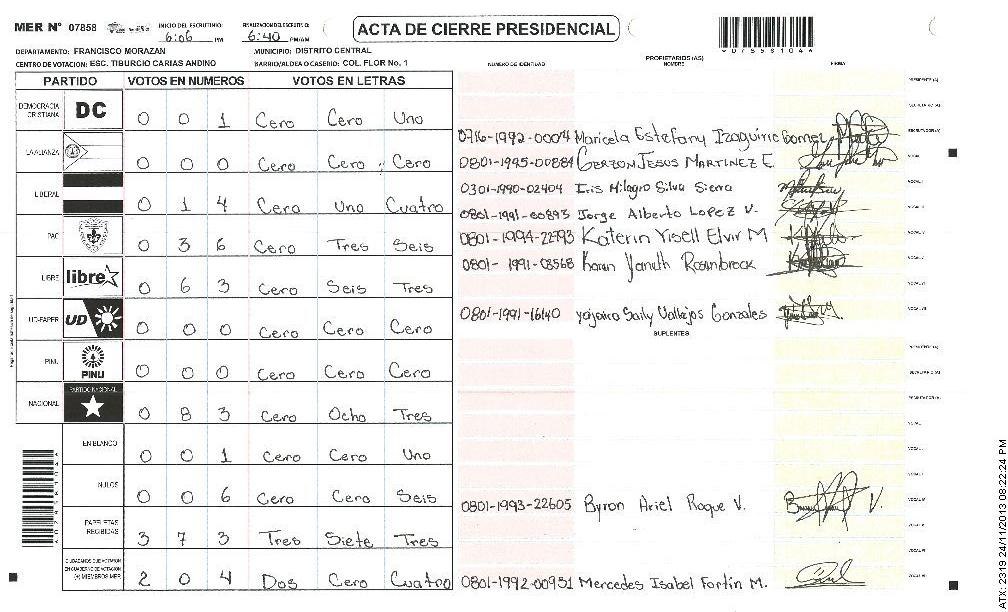 MER N° 07858
INICIO DEL ESCRUTINIO: 6:06 PM
FINALIZACION DEL ESCRUTINIO: 6:40 PM/AM
ACTA DE CIERRE PRESIDENCIAL
DEPARTAMENTO: FRANCISCO MORAZAN
MUNICIPIO: DISTRITO CENTRAL
CENTRO DE VOTACION: ESC. TIBURCIO CARIAS ANDINO
BARRIO/ALDEA O CASERIO: COL. FLOR No. 1
PARTIDO VOTOS EN NUMEROS VOTOS EN LETRAS
DEMOCRACIA CRISTIANA DC 0 0 1 Cero Cero Uno
LA ALIANZA 0 0 0 Cero Cero Cero
LIBERAL 0 1 4 Cero Uno Cuatro
PAC 0 3 6 Cero Tres Seis
LIBRE libre 0 6 3 Cero Seis Tres
UD-FAPER UD 0 0 0 Cero Cero Cero
PINU PINU 0 0 0 Cero Cero Cero
NACIONAL PARTIDO NACIONAL 0 8 3 Cero Ocho Tres
EN BLANCO 0 0 1 Cero Cero Uno
NULOS 0 0 6 Cero Cero Seis
PAPELETAS RECIBIDAS 3 7 3 Tres Siete Tres
CIUDADANOS QUE VOTARON EN CUADERNO DE VOTACION (+) MIEMBROS MER 2 0 4 Dos Cero Cuatro
NUMERO DE IDENTIDAD
PROPIETARIOS (AS)
NOMBRE
FIRMA
0716-1992-0004 Maricela Estefany Izaguirre Gomez
0801-1995-00884 GERZON JESUS MARTINEZ E.
0301-1990-02404 Iris Milagro Silva Sierra
0801-1991-00893 Jorge Alberto Lopez V.
0801-1994-22793 Katerin Yisell Elvir M
0801-1991-08568 Karen Yanuth Rosenbrock
0801-1991-16140 Yojaira Saily Vallejos Gonzales
SUPLENTES
0801-1993-22605 Byron Ariel Roque V.
0801-1992-00951 Mercedes Isabel Fortin M.
PRESIDENTE (A)
SECRETARIO (A)
ESCRUTADOR (A)
ATX-2319 24/11/2013 08:22:24 PM